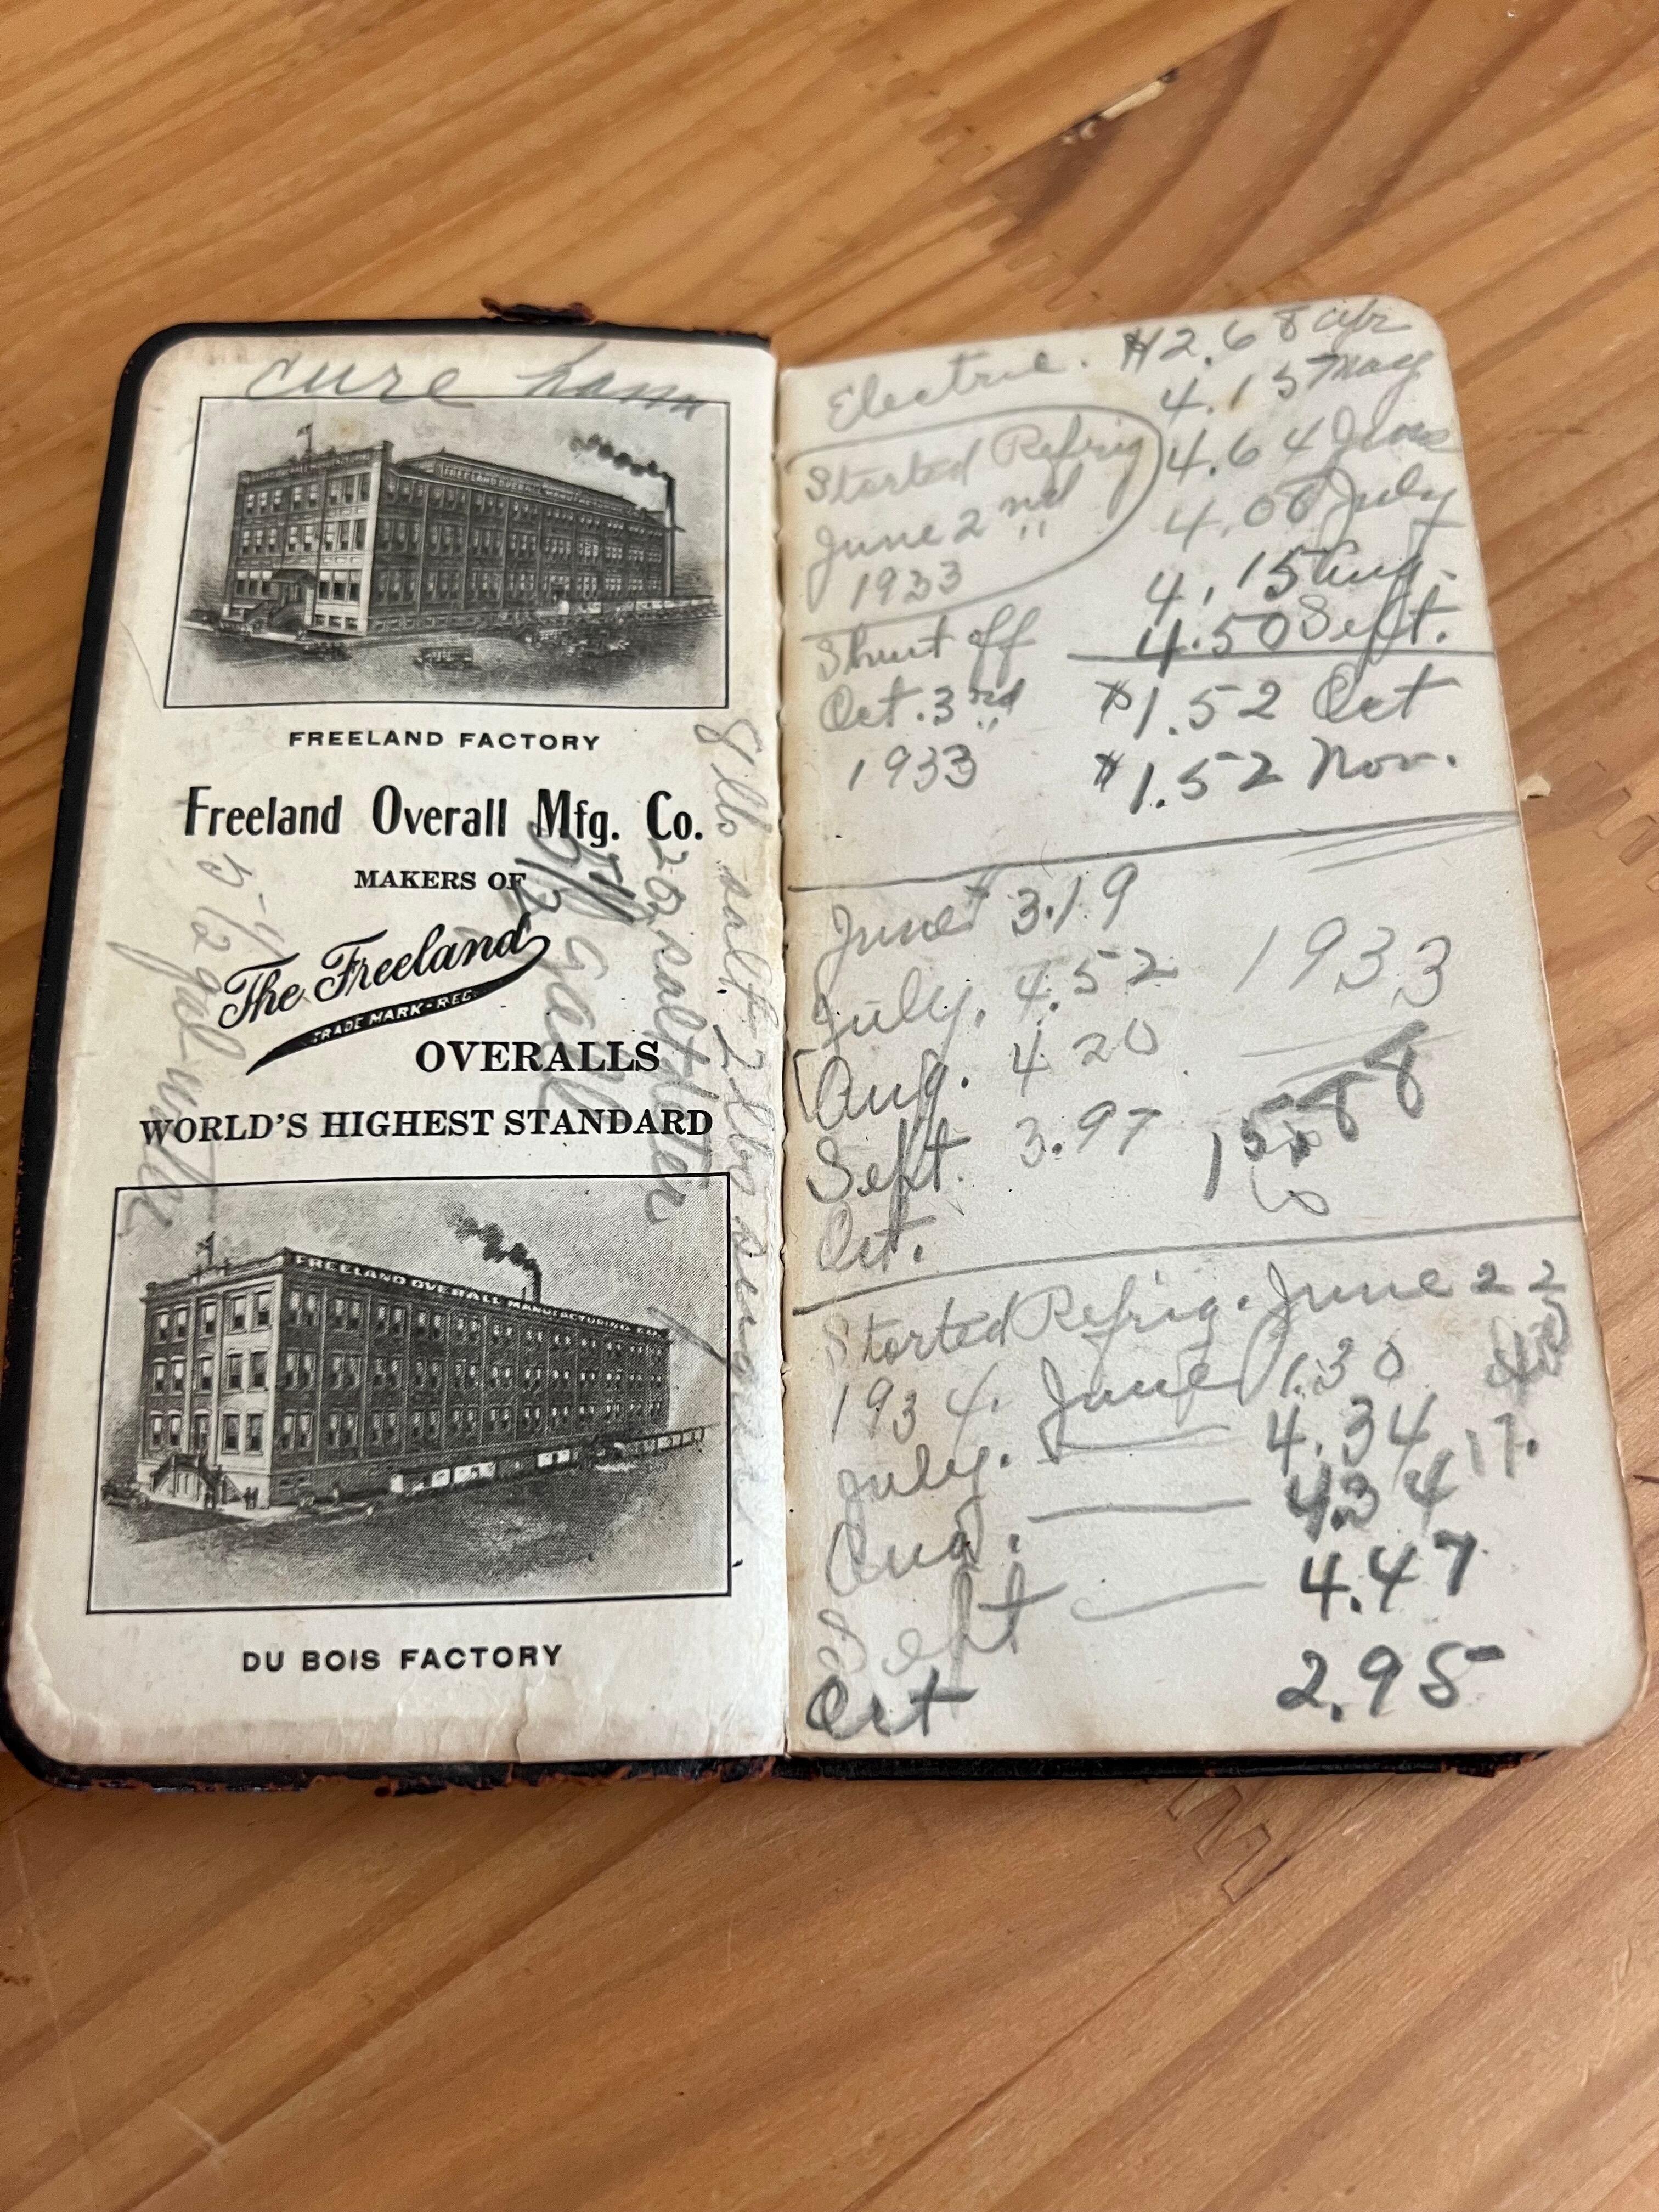 cure ham
FREELAND OVERALL MANUFACTURING CO.
FREELAND FACTORY
Freeland Overall Mfg. Co.
MAKERS OF
The Freeland
TRADE MARK-REG.
OVERALLS
WORLD'S HIGHEST STANDARD
FREELAND OVERALL MANUFACTURING CO.
DU BOIS FACTORY
8 lbs salt 2 lbs sugar
2 oz saltpeter
5 1/2 Gal
5-1/2 gal-water
Electric. $2.68 Apr
4.15 May
Started Refrig 4.64 June
June 2nd 4.08 July
1933 4.15 Aug.
Shut off 4.50 Sept.
Oct. 3rd $1.52 Oct
1933 $1.52 Nov.
June 3.19
July. 4.52 1933
Aug. 4 20
Sept. 3.97
Oct.
Started Refrig. June 22
1934. June 1.30
July. 4.34
Aug. 4.34 17.
Sept 4.47
Oct 2.95